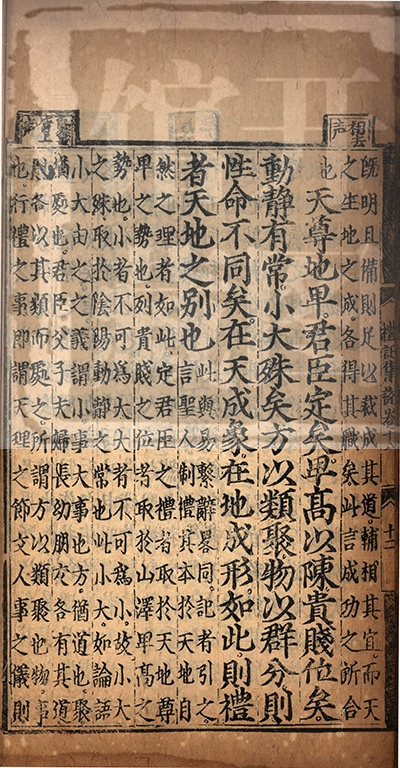 相去声
既明且備則足以裁成其道輔相其宜而天
之生地之成各得其職矣此言成功之所合
也天尊地卑君臣定矣卑高以陳貴賤位矣
動靜有常小大殊矣方以類聚物以群分則
性命不同矣在天成象在地成形如此則禮
者天地之別也
此與易繫辭畧同記者引之
言聖人制禮其本於天地自
然之理者如此定君臣之禮者取於天地尊
卑之勢也列貴賤之位者取於山澤卑高之
勢也小者不可為大大者不可為小故小大
之殊取於陰陽動靜之常也此小大如論語
小大由之之義謂小事大事也方猶道也聚
猶處也君臣父子夫婦長幼朋友各有其道
則各以其類而處之所謂方以類聚也物事
也行禮之事即謂天理之節文人事之儀則
禮記集說卷
十二